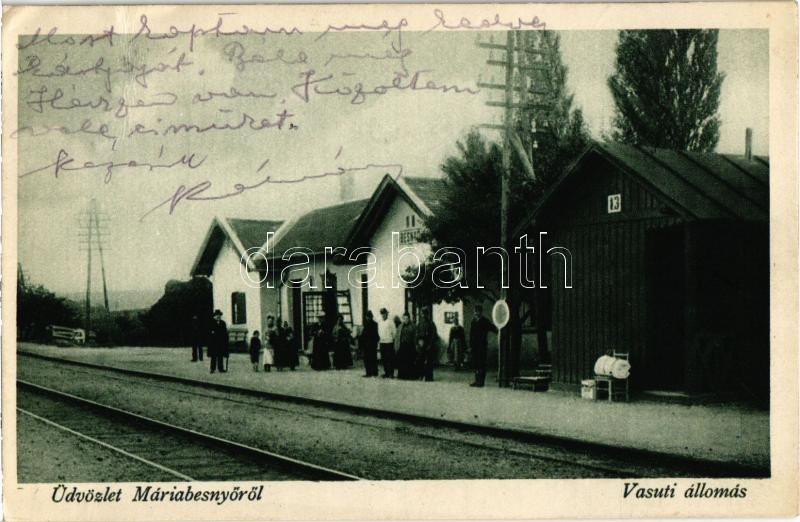 Most kaptam meg kedves
kártyáját. Bele meg
Herzen van. Közöltem
vele címüket.
Kezét
13
BESNYŐ
darabanth
Üdvözlet Máriabesnyőről
Vasuti állomás